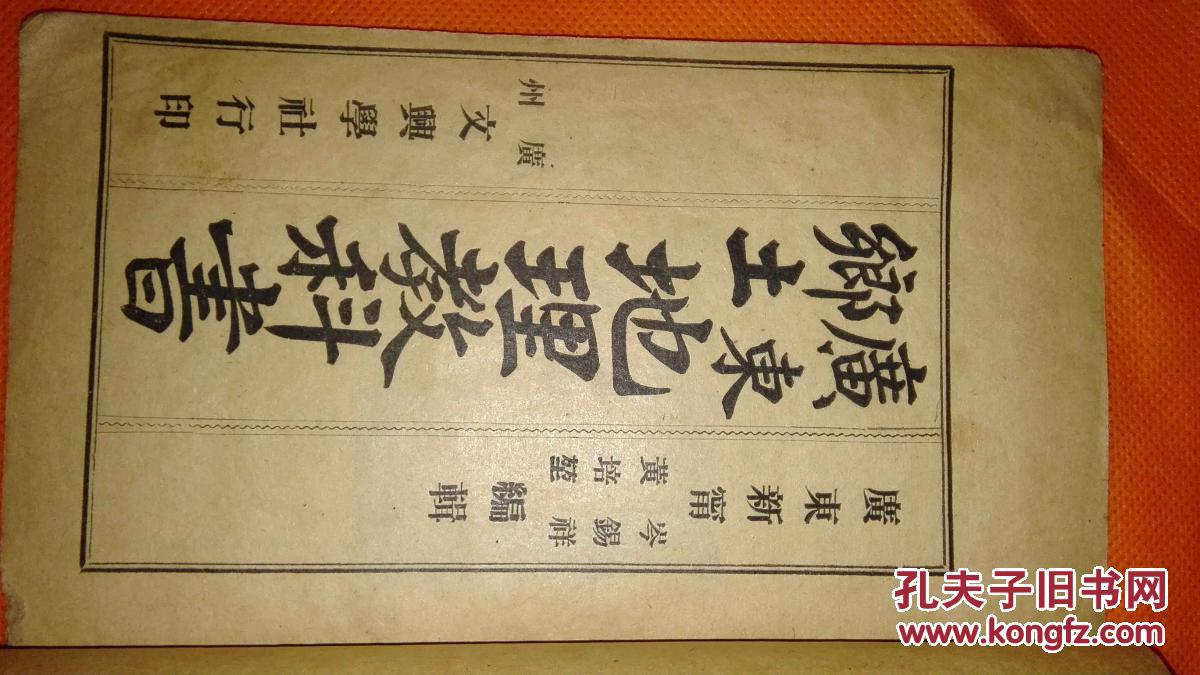 廣東新甯
岑錫祥
黃培堃
編輯
廣東
鄉土
地理教科書
廣州
文興學社行印
孔夫子旧书网
www.kongfz.com